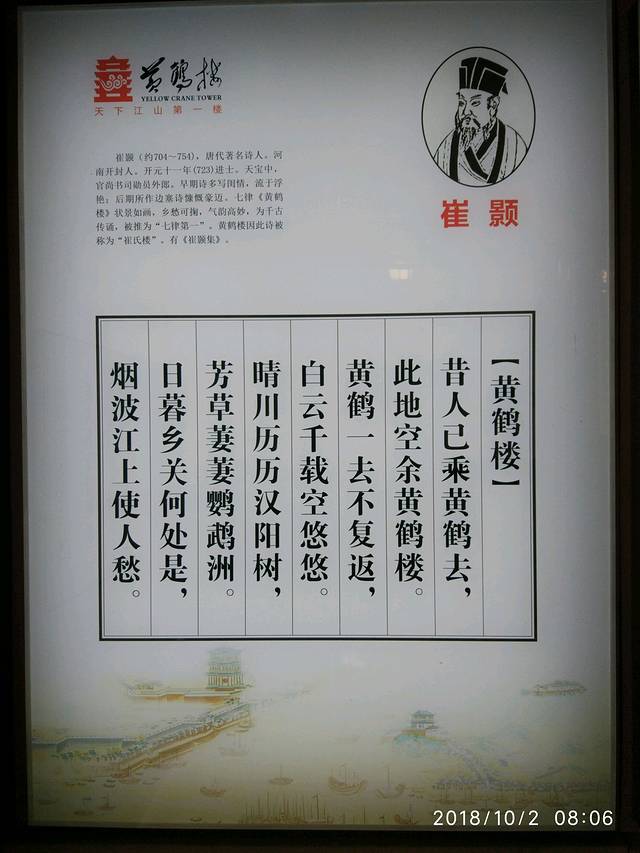 黄鹤楼
YELLOW CRANE TOWER
天下江山第一楼
崔颢
崔颢（约704～754），唐代著名诗人。河
南开封人。开元十一年(723)进士。天宝中，
官尚书司勋员外郎。早期诗多写闺情，流于浮
艳；后期所作边塞诗慷慨豪迈。七律《黄鹤
楼》状景如画，乡愁可掬，气韵高妙，为千古
传诵，被推为“七律第一”。黄鹤楼因此诗被
称为“崔氏楼”。有《崔颢集》。
【黄鹤楼】
昔人已乘黄鹤去，
此地空余黄鹤楼。
黄鹤一去不复返，
白云千载空悠悠。
晴川历历汉阳树，
芳草萋萋鹦鹉洲。
日暮乡关何处是，
烟波江上使人愁。
2018/10/2 08:06